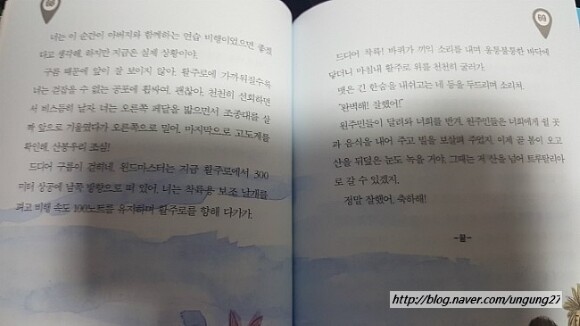 68
너는 이 순간이 아버지와 함께하는 연습 비행이었으면 좋겠
다고 생각해. 하지만 지금은 실제 상황이야.
구름 때문에 앞이 잘 보이지 않아. 활주로에 가까워질수록
너는 걷잡을 수 없는 공포에 휩싸여. 괜찮아. 천천히 선회하면
서 비스듬히 날자. 너는 오른쪽 페달을 밟으면서 조종대를 살
짝 앞으로 기울였다가 오른쪽으로 밀어. 마지막으로 고도계를
확인해. 산봉우리 조심!
드디어 구름이 걷히네. 윈드마스터는 지금 활주로에서 300
미터 상공에 남쪽 방향으로 떠 있어. 너는 착륙용 보조 날개를
펴고 비행 속도 100노트를 유지하며 활주로를 향해 다가가.
69
드디어 착륙! 바퀴가 끼익 소리를 내며 울퉁불퉁한 바닥에
닿더니 마침내 활주로 위를 천천히 굴러가.
맷은 긴 한숨을 내쉬고는 네 등을 두드리며 소리쳐.
"완벽해! 잘했어!"
원주민들이 달려와 너희를 반겨. 원주민들은 너희에게 쉴 곳
과 음식을 내어 주고 빌을 보살펴 주었지. 이제 곧 봄이 오고
산을 뒤덮은 눈도 녹을 거야. 그때는 저 산을 넘어 트루탈리아
로 갈 수 있겠지.
정말 잘했어. 축하해!
-끝-
http://blog.naver.com/ungung27